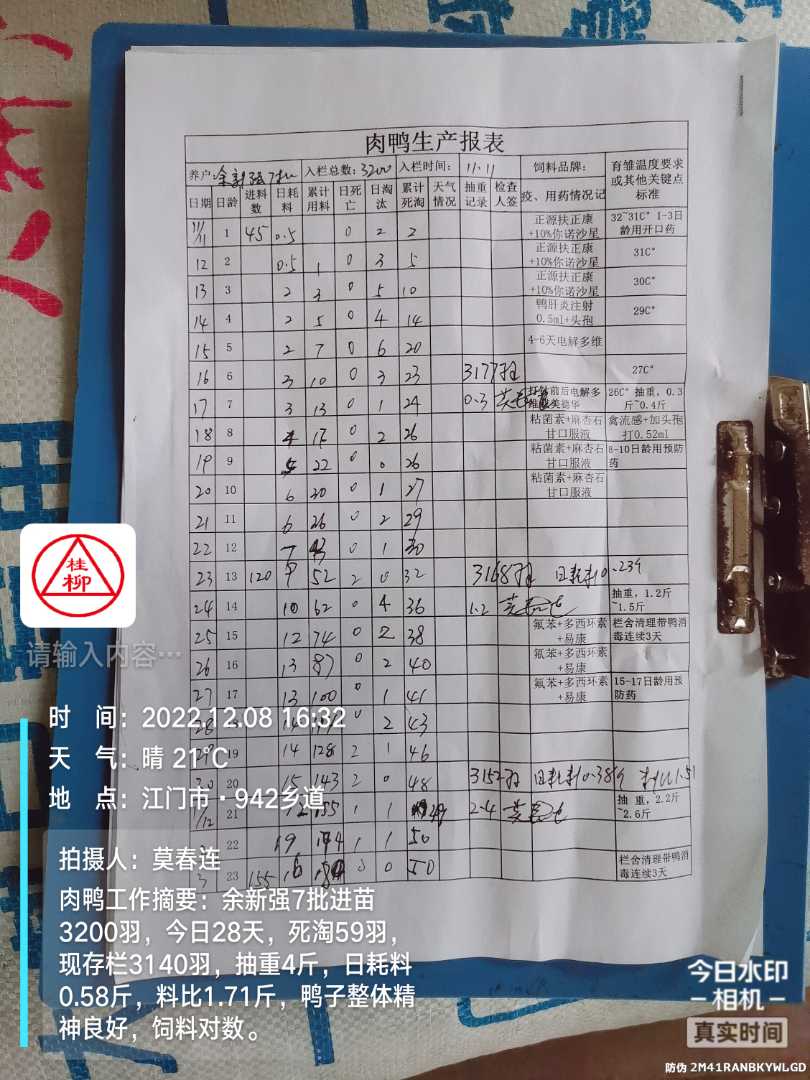 肉鸭生产报表
养户: 余新强7批 入栏总数: 3200 入栏时间: 11.11 饲料品牌: 育雏温度要求或其他关键点标准
日期 日龄 进料数 日耗料 累计用料 日死亡 日淘汰 累计死淘 天气情况 抽重记录 检查人签 疫、用药情况记
11/11 1 45 0.5 0 2 2 正源扶正康+10%你诺沙星 32~31C° 1-3日龄用开口药
12 2 0.5 1 0 3 5 正源扶正康+10%你诺沙星 31C°
13 3 2 3 0 5 10 正源扶正康+10%你诺沙星 30C°
14 4 2 5 0 4 14 鸭肝炎注射0.5ml+头孢 29C°
15 5 2 7 0 6 20 4-6天电解多维
16 6 3 10 0 3 23 3177羽 27C°
17 7 3 13 0 1 24 0.3 前后电解多 26C° 抽重，0.3斤~0.4斤
18 8 4 17 0 2 26 粘菌素+麻杏石甘口服液 禽流感+加头孢打0.52ml
19 9 5 22 0 0 26 粘菌素+麻杏石甘口服液 8-10日龄用预防药
20 10 6 20 0 1 27 粘菌素+麻杏石甘口服液
21 11 6 26 0 2 29
22 12 7 43 0 1 30
23 13 120 9 52 2 0 32 3168羽 日耗料0.239
24 14 10 62 0 4 36 1.2 抽重，1.2斤~1.5斤
25 15 12 74 0 2 38 氟苯+多西环素+易康 栏舍清理带鸭消毒连续3天
26 16 13 87 0 2 40 氟苯+多西环素+易康
27 17 13 100 0 1 41 氟苯+多西环素+易康 15-17日龄用预防药
28 2 43
29 19 14 128 2 1 46
30 20 15 143 2 0 48 3152羽 日耗料0.38斤 料比1.51
1/12 21 12 155 1 1 49 2.4 抽重，2.2斤~2.6斤
2 22 19 174 1 1 50
3 23 155 16 0 0 50 栏舍清理带鸭消毒连续3天
桂柳
请输入内容…
时 间：2022.12.08 16:32
天 气：晴 21℃
地 点：江门市·942乡道
拍摄人：莫春连
肉鸭工作摘要：余新强7批进苗
3200羽，今日28天，死淘59羽，
现存栏3140羽，抽重4斤，日耗料
0.58斤，料比1.71斤，鸭子整体精
神良好，饲料对数。
今日水印
相机
真实时间
防伪 2M41RANBKYWLGD